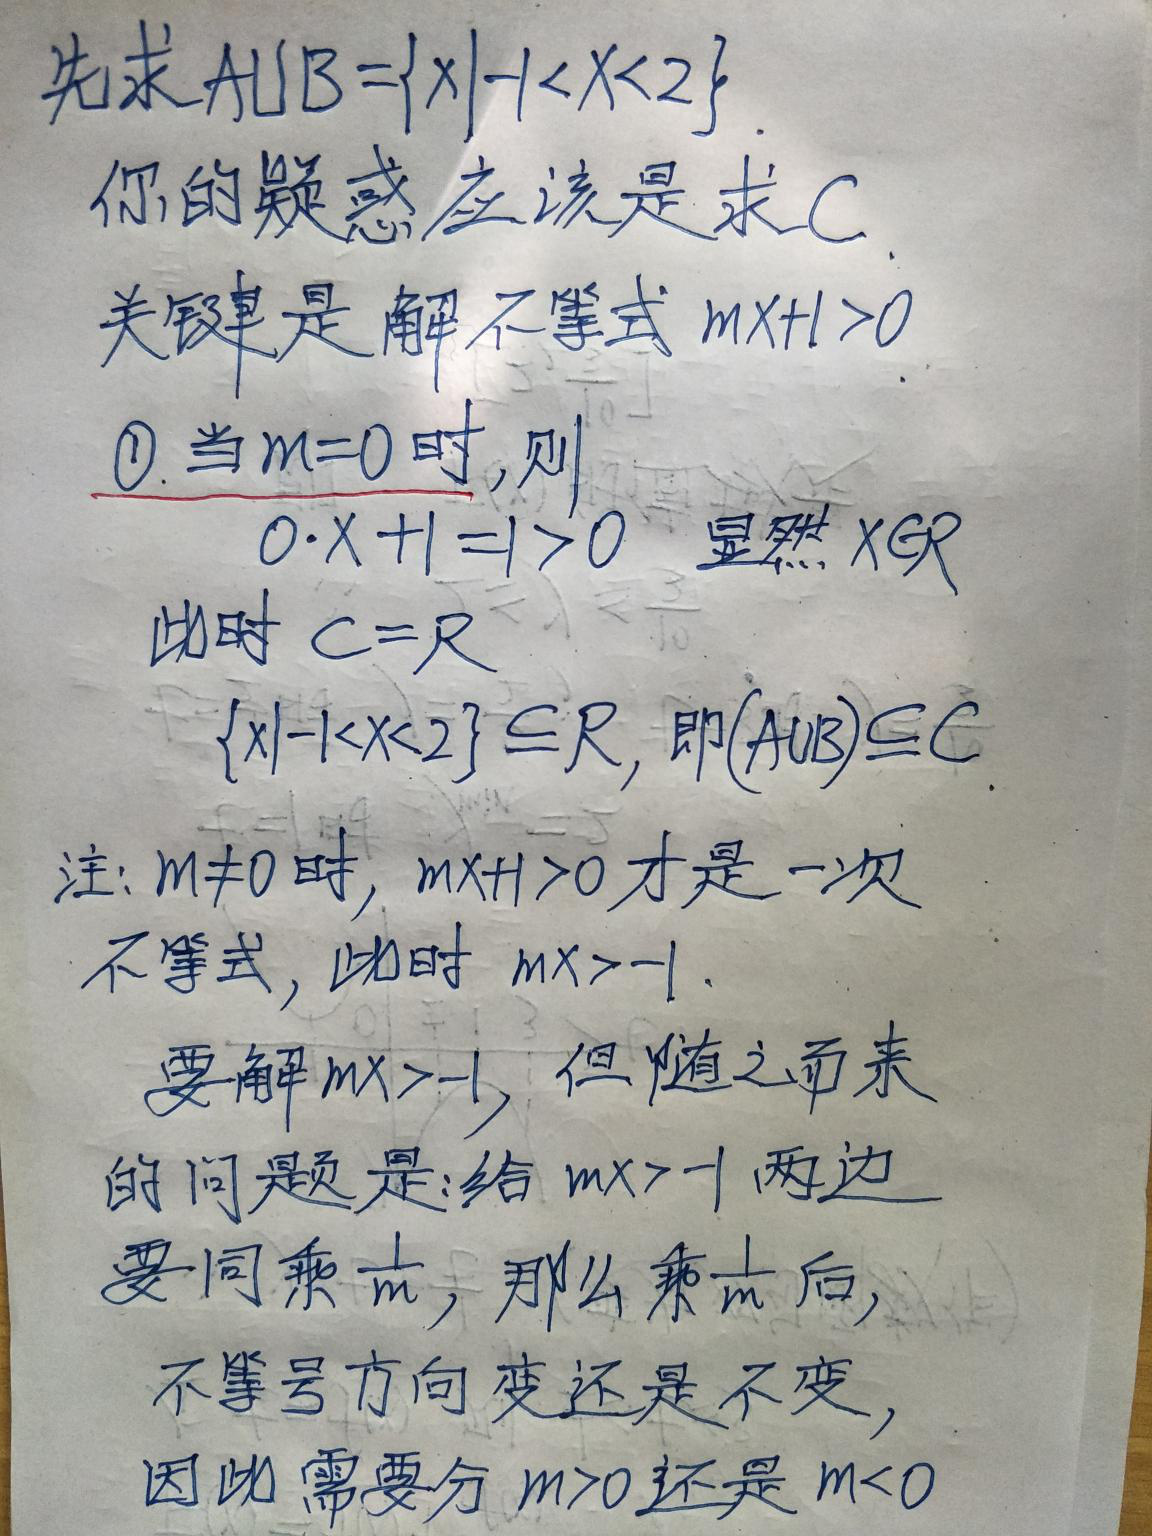 先求A∪B={x|-1<x<2}.
你的疑惑应该是求C.
关键是解不等式mx+1>0.
①.当m=0时,则
0·x+1=1>0 显然x∈R
此时 C=R
{x|-1<x<2}⊆R,即(A∪B)⊆C.
注:m≠0时,mx+1>0才是一次
不等式,此时 mx>-1.
要解mx>-1,但随之而来
的问题是:给mx>-1两边
要同乘1/m,那么乘1/m后,
不等号方向变还是不变,
因此需要分m>0还是m<0